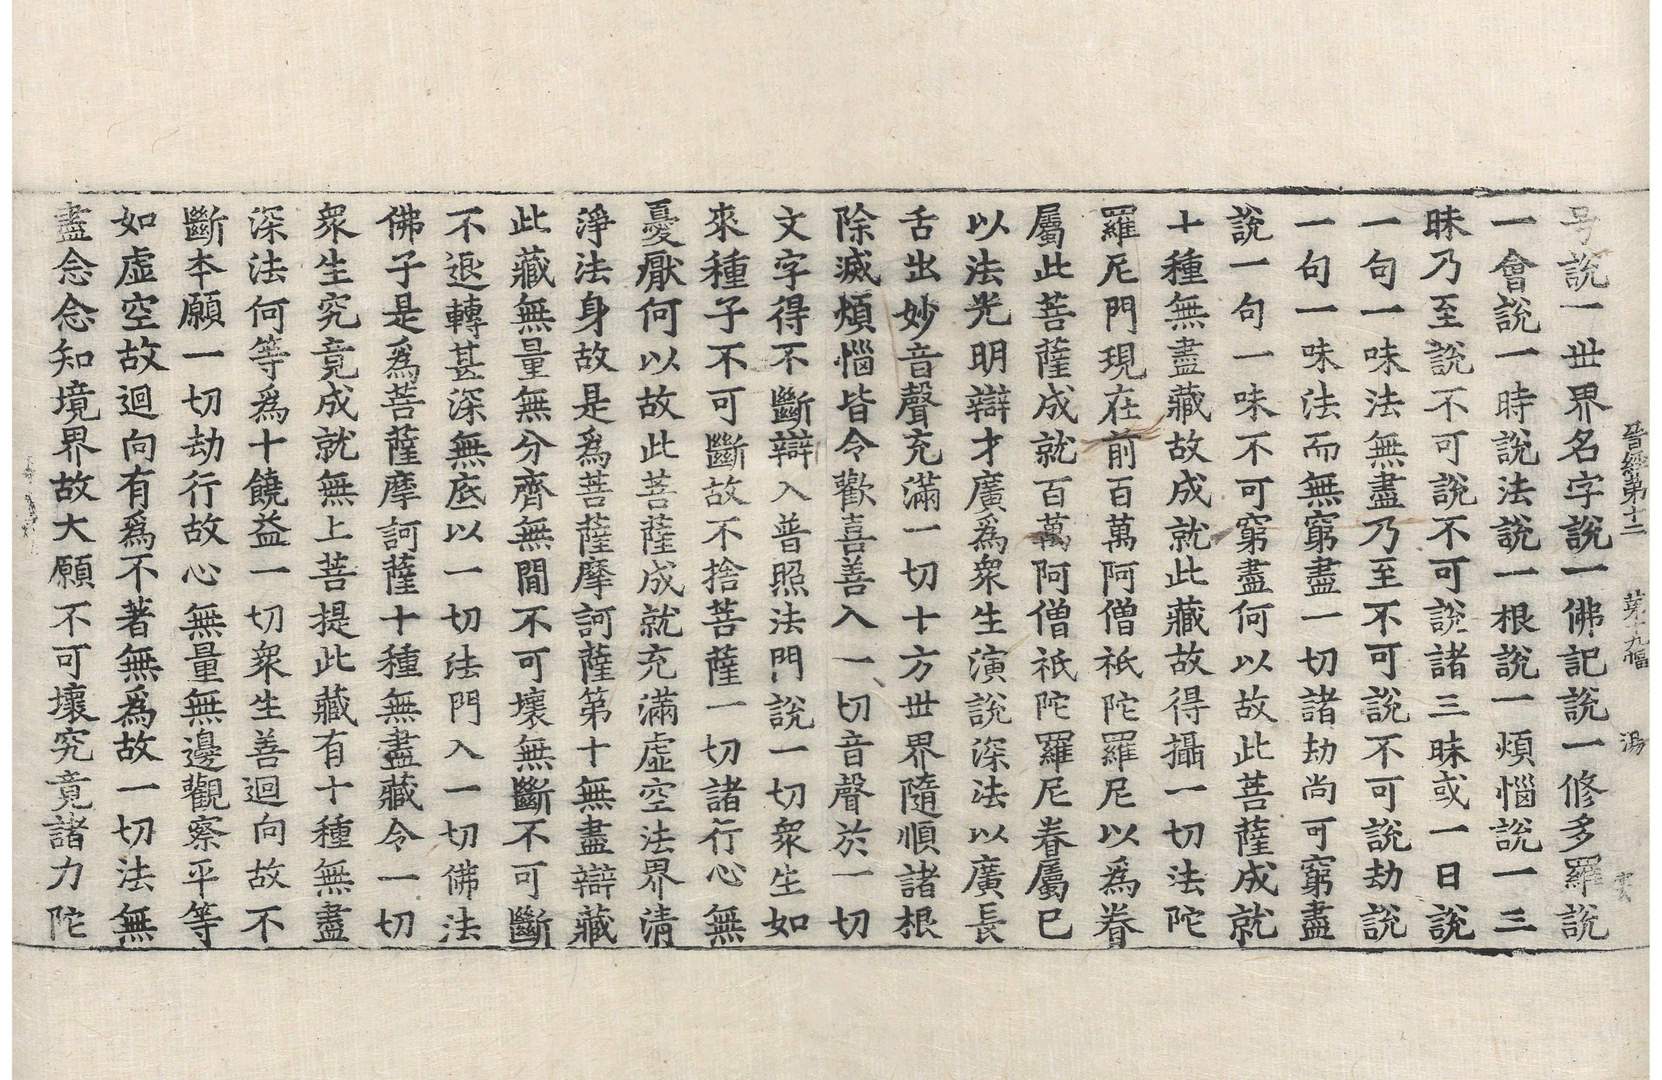 晉經第十二 十九幅 湯
号說一世界名字說一佛記說一修多羅說
一會說一時說法說一根說一煩惱說一三
昧乃至說不可說不可說諸三昧或一日說
一句一味法無盡乃至不可說不可說劫說
一句一味法而無窮盡一切諸劫尚可窮盡
說一句一味不可窮盡何以故此菩薩成就
十種無盡藏故成就此藏故得攝一切法陀
羅尼門現在前百萬阿僧祇陀羅尼以為眷
屬此菩薩成就百萬阿僧祇陀羅尼眷屬已
以法光明辯才廣為衆生演說深法以廣長
舌出妙音聲充滿一切十方世界隨順諸根
除滅煩惱皆令歡喜善入一切音聲於一切
文字得不斷辯入普照法門說一切衆生如
來種子不可斷故不捨菩薩一切諸行心無
憂厭何以故此菩薩成就充滿虛空法界清
淨法身故是為菩薩摩訶薩第十無盡辯藏
此藏無量無分齊無間不可壞無斷不可斷
不退轉甚深無底以一切法門入一切佛法
佛子是為菩薩摩訶薩十種無盡藏令一切
衆生究竟成就無上菩提此藏有十種無盡
深法何等為十饒益一切衆生善迴向故不
斷本願一切劫行故心無量無邊觀察平等
如虛空故迴向有為不著無為故一切法無
盡念念知境界故大願不可壞究竟諸力陀